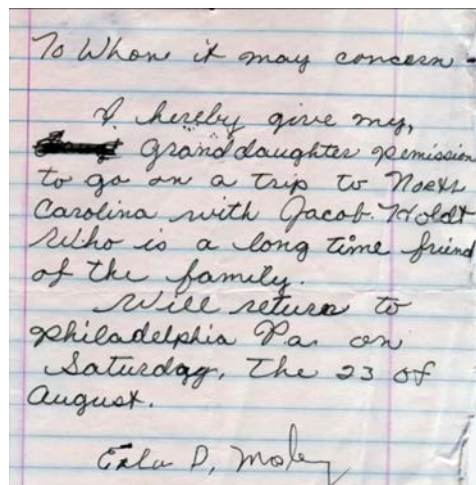 To Whom it may concern -
I hereby give my,
Granddaughter pemission
to go on a trip to North
Carolina with Jacob Holdt
Who is a long time friend
of the family.
Will return to
philadelphia Pa. on
Saturday, The 23 of
August.
D, Mosley